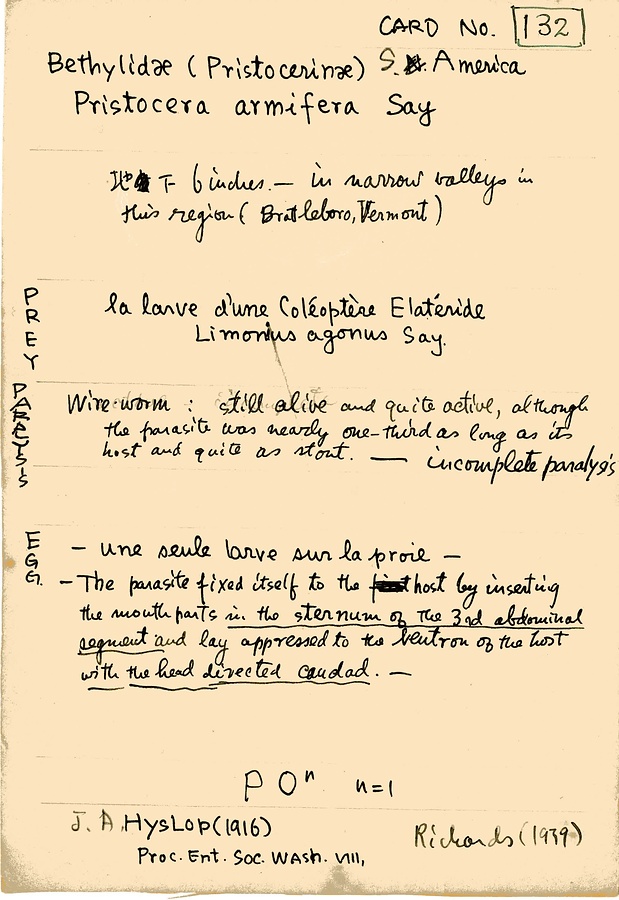 CARD NO. 132
Bethylidæ (Pristocerinæ) S. America
Pristocera armifera Say
地下 6 inches. — in narrow valleys in
this region (Bratleboro, Vermont)
PREY
la larve d'une Coléoptère Elatéride
Limonius agonus Say.
PARALYSIS
Wire-worm : still alive and quite active, although
the parasite was nearly one-third as long as its
host and quite as stout. — incomplete paralysis
EGG.
— une seule larve sur la proie —
— The parasite fixed itself to the host by inserting
the mouthparts in the sternum of the 3rd abdominal
segment and lay appressed to the ventron of the host
with the head directed caudad. —
P Oⁿ n=1
J. A. HYSLOP (1916)
Proc. Ent. Soc. Wash. VIII,
Richards (1939)